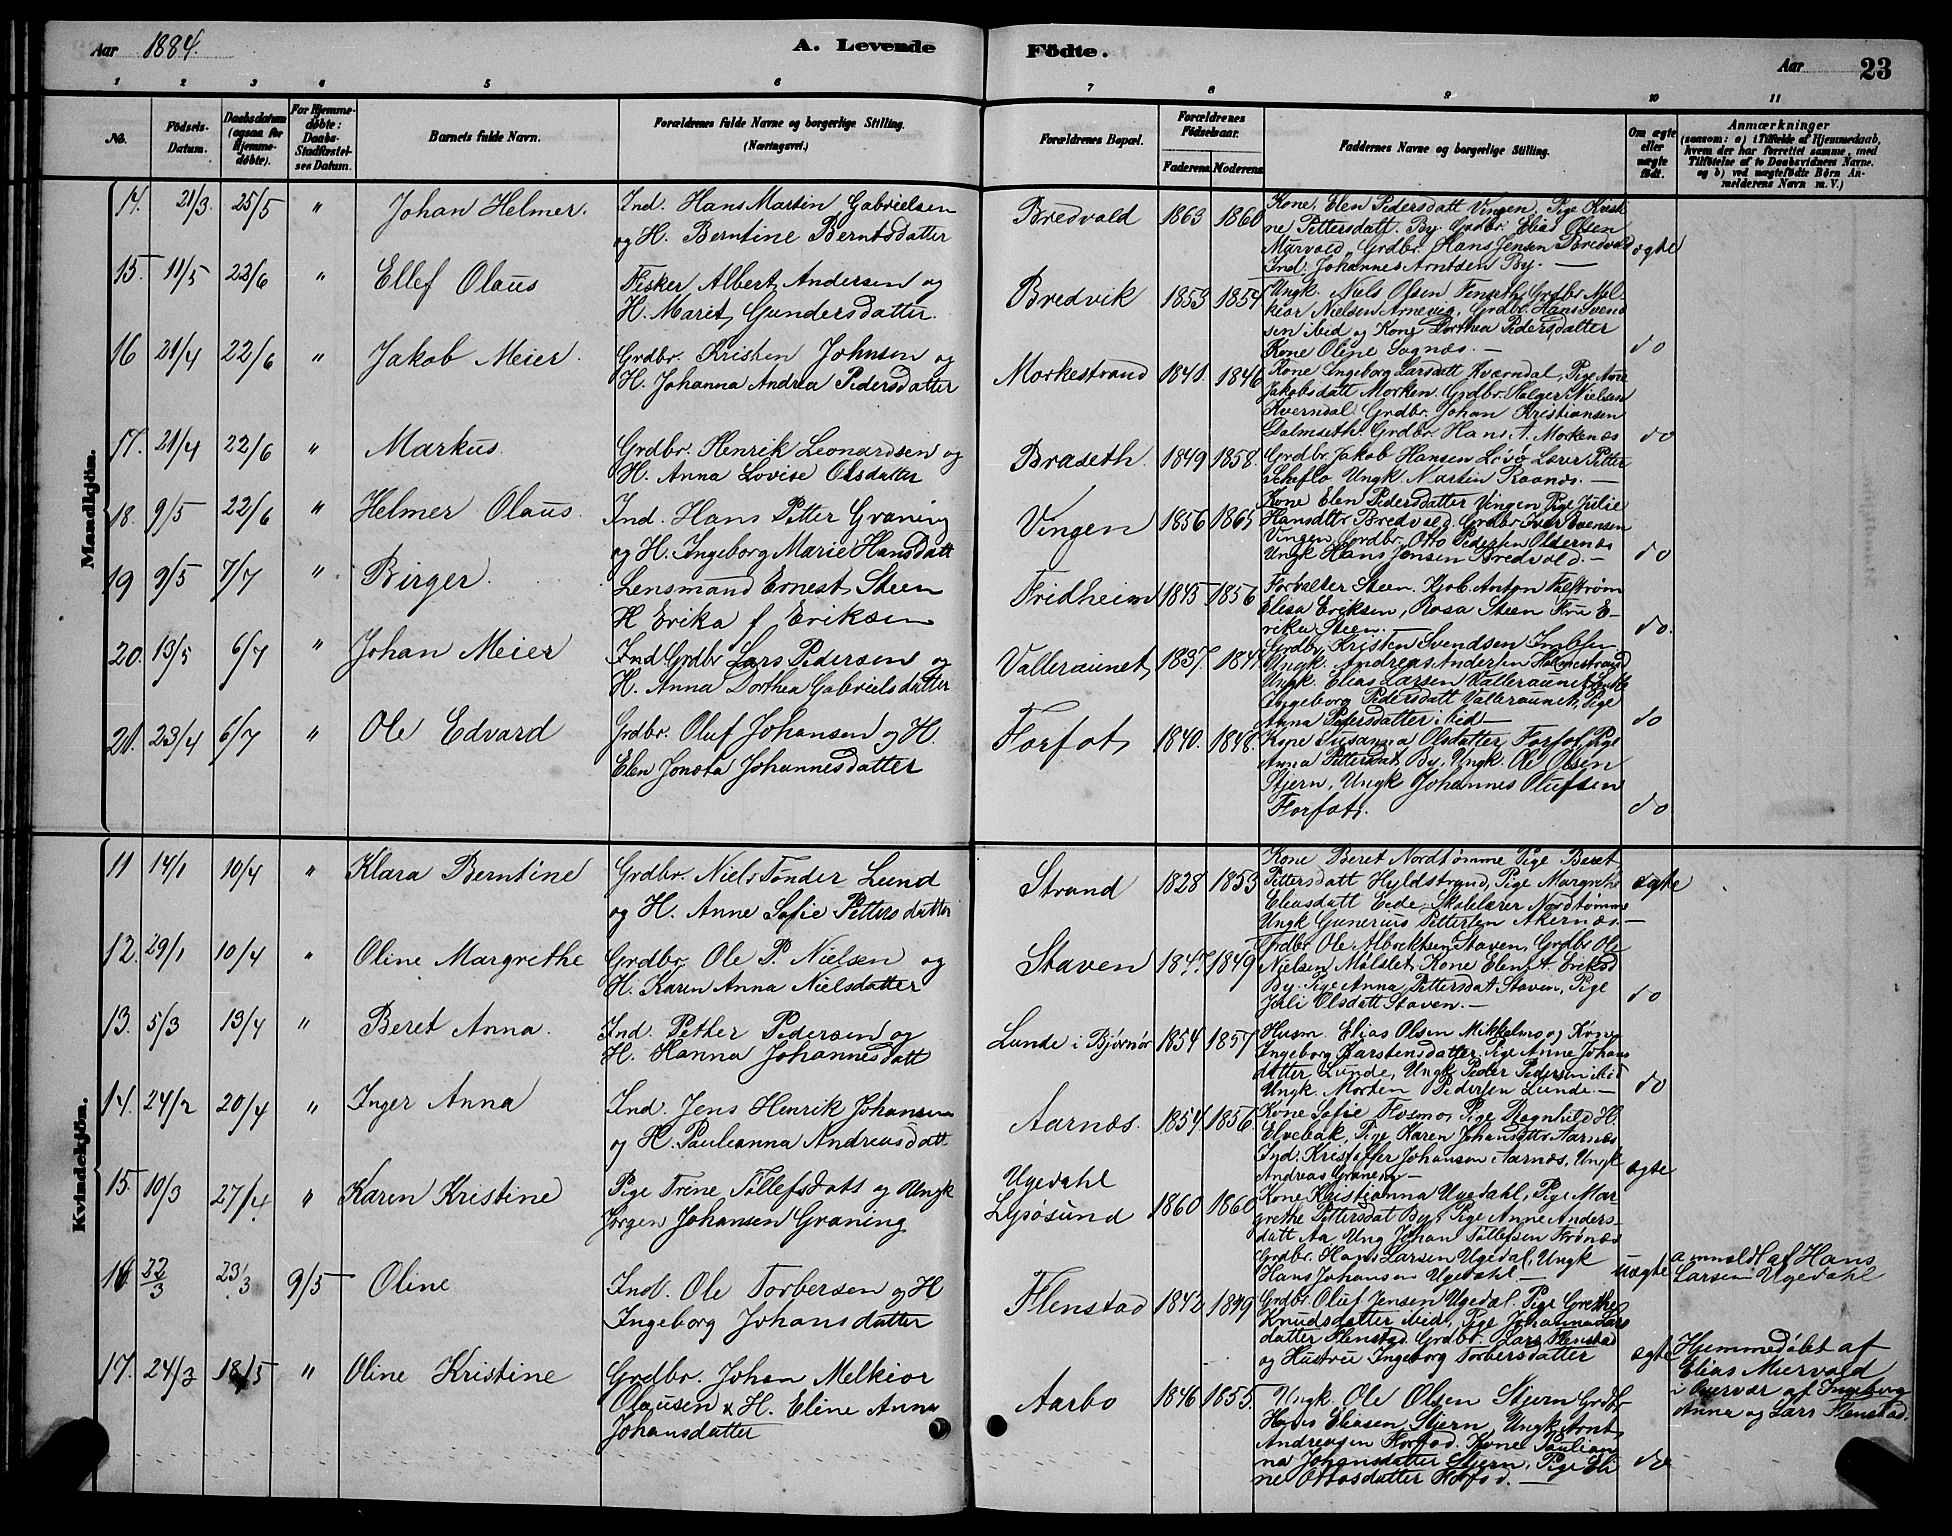 Aar 1884. A. Levende Födte. Aar 23
1 2 3 4 5 6 7 8 9 10 11
No.
Födsels-
Datum.
Daabsdatum
(ogsaa for
Hjemme-
döbte).
For Hjemme-
döbte:
Daabs-
Stadfæstel-
ses Datum.
Barnets fulde Navn.
Forældrenes fulde Navne og borgerlige Stilling.
(Næringsvei.)
Forældrenes Bopæl.
Forældrenes
Födselsaar.
Faderens. Moderens.
Faddernes Navne og borgerlige Stilling.
Om ægte
eller
uægte
födt.
Anmærkninger
(saasom: a) i Tilfælde af Hjemmedaab,
hvem der har forrettet samme, med
Tilföielse af to Daabsvidners Navne.
og b) ved uægtefödte Börn An-
melderens Navn m. V.)
Mandkjön.
14. 21/3. 25/5 " Johan Helmer. Ind. Hans Martin Gabrielsen
og H. Berntine Berntsdatter
Bredvold 1863 1860
Kone Elen Pedersdatt Vingen, Pige Kristi
ne Pettersdatt. By. Grdbr. Elias Olsen
Murvold, Grdbr. Hans Jensen Bredvold
Ind. Johannes Arntsen By. —
ægte
15. 11/5 22/6 " Ellef Olaus Fisker Albert Andersen og
H. Marit Gundersdatter.
Bredvik 1853 1854.
Ungk. Niels Olsen Grdbr Mel-
kior Nielsen Arnevig, Grdbr. Hans Svend
sen ibid og Kone Dorthea Pedersdatter
Kone Oline Sagnæs. —
do
16 21/4 22/6 " Jakob Meier. Grdbr. Kristen Johnsen og
H. Johanna Andrea Pedersdatter
Morkestrand 1841. 1846
Kone Ingeborg Larsdatt Kværndal, Pige Ane
Jakobsdatt Morken. Grdbr. Holger Nielsen
Kverndal. Grdbr. Johan Kristiansen
Dalmseth. Grdbr. Hans A. Morkenæs
do
17. 21/4 22/6 " Markus. Grdbr. Henrik Leonardsen og
H. Anna Lovise Olsdatter
Braseth. 1849 1858.
Grdbr. Jakob Hansen Lysø Lærer Petter
Scheflo Ungk. Martin Raanæs. —
18. 9/5 22/6 " Helmer Olaus. Ind. Hans Petter Graning
og H. Ingeborg Marie Hansdatt
Vingen 1856 1865
Kone Elen Pedersdatter Vingen Pige Julie
Hansdttr Bredvold. Grdbr. Iver Svensen
Vingen, Grdbr. Otto Pedersen Oldernæs
Ungk Hans Jensen Bredvold. —
do
19 9/5 7/7 " Birger. Lensmand Ernest Steen
H Erika f Eriksen
Fridheim 1845 1856
Forvalter Steen. Kjøb. Anton
Elisa Eriksen, Rosa Steen Fru E-
rika Steen. —
do.
20. 13/5 6/7 " Johan Meier Ind Grdbr Lars Pedersen og
H. Anna Dorthea Gabrielsdatter
Valleraunet 1837. 1841.
Grdbr. Kristen Svendsen
Ungk. Andreas Andersen
Ungk. Elias Larsen Valleraunet, Enke
Ingeborg Pedersdatt Valleraunet, Pige
Anna Pedersdatter ibid —
do
21. 23/4 6/7 " Ole Edvard Grdbr. Oluf Johansen og H.
Elen Jonsta Johannesdatter
Forfot 1840. 1848.
Kone Susanna Olsdatter Forfot, Pige
Anna Pettersdat By, Ungk. Ole Olsen
Stjern, Ungk Johannes Olufsen
Forfot.
do
Kvindekjön.
11 14/1 10/4 " Klara Berntine Grdbr. Niels Tønder Lund
og H. Anne Sofie Pettersdatter
Strand 1828 1853
Kone Beret Nordtømme Pige Beret
Pettersdatt Hyldstrand, Pige Margrethe
Eliasdatt Eide. Skolelærer Nordtømme
Ungk Gunerius Pettersen Akernæs. —
ægte
12. 29/1 10/4 " Oline Margrethe Grdbr. Ole P. Nielsen og
H. Karen Anna Nielsdatter
Staven 1847. 1849
Grdbr Ole Albrektsen Staven, Grdbr Ole
Nielsen Mølslet, Kone Elen A. Eriksd
By. Pige Anna Pettersdat Staven, Pige
Juli Olsdatt Staven. —
do
13. 5/3 13/4 " Beret Anna. Ind. Petter Pedersen og
H. Hanna Johannesdatt
Lunde i Bjørnør 1854 1857
Husm. Elias Olsen og Kone
Ingeborg Karstensdatter. Pige Anne Johans
datter Lunde, Ungk Peder Pedersen ibid
Ungk. Morten Pedersen Lunde. —
do
14. 24/2 20/4 " Inger Anna Ind. Jens Henrik Johansen
og H. Pauleanna Andreasdatt.
Aarnæs. 1854. 1856.
Kone Sofie Pige Ragnhild H.
Elvebak, Pige Karen Johansdattr Aarnæs
Ind. Kristoffer Johansen Aarnæs, Ungk
Andreas Graning —
ægte
15. 10/3 27/4 " Karen Kristine Pige Trine Tøllefsdatt og Ungk
Jørgen Johansen Graning
Ugedahl
Lysøsund 1860 1860
Kone Kristianna Ugedahl, Pige Mar
grethe Pettersdat By, Pige Anne Anders-
datt Aa Ung Johan Tøllefsen
Grdbr. Hans Larsen Ugedal, Ungk
Hans Johansen Ugedahl —
uægte
anmeldt af Hans
Larsen Ugedahl
16 22/3 23/3 9/5 Oline Ind. Ole Torbersen og H
Ingeborg Johansdatter
Flenstad 1842 1849
Grdbr. Oluf Jensen Ugedal. Pige Grethe
Knudsdatter ibid, Pige Johanna Lars
datter Flenstad Grdbr. Lars Flenstad
og Hustru Ingeborg Torbersdatter
ægte
Hjemmedøbt af
Elias Murvold
i Overvær af Ingeborg
Anna og Lars Flenstad.
17. 24/3 18/5 " Oline Kristine Grdbr. Johan Melkior
Olausen & H. Eline Anna
Johansdatter
Aarbo 1846 1855.
Ungk. Ole Olsen Stjern Grdbr
Hans Eliasen Stjern, Ungk Arnt
Andreasen Forfod. Kone Paulian
na Johansdatter Stjern, Pige Eli
ne Ottosdatter Forfod. —
do